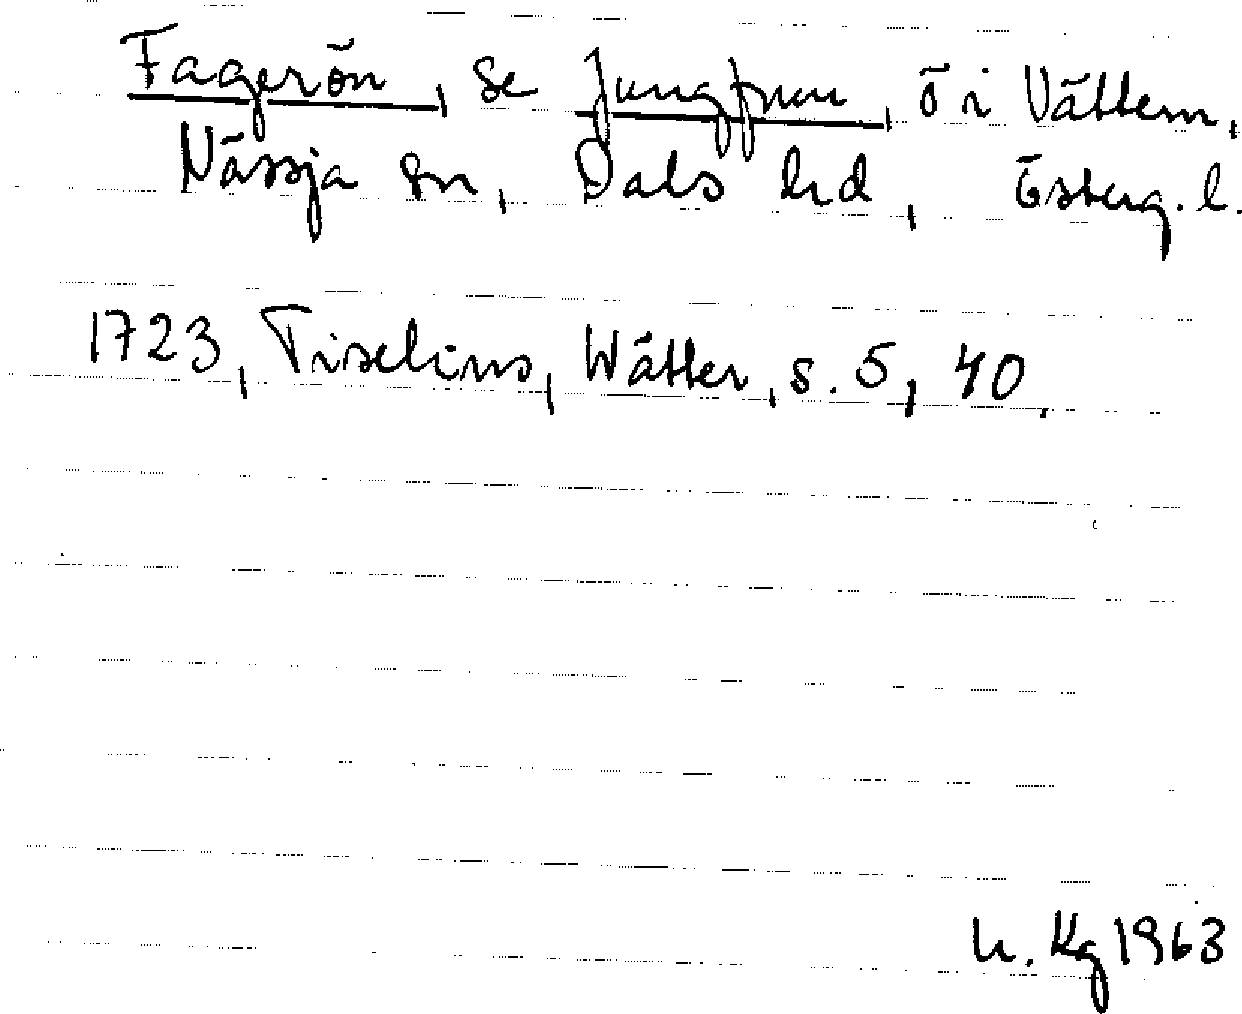 Fagerön, se Jungfrun, ö i Vättern,
Nässja sn, Dals hd, Österg. l.
1723, Tiselius, Wätter, s. 5, 40.
U. Kg 1963